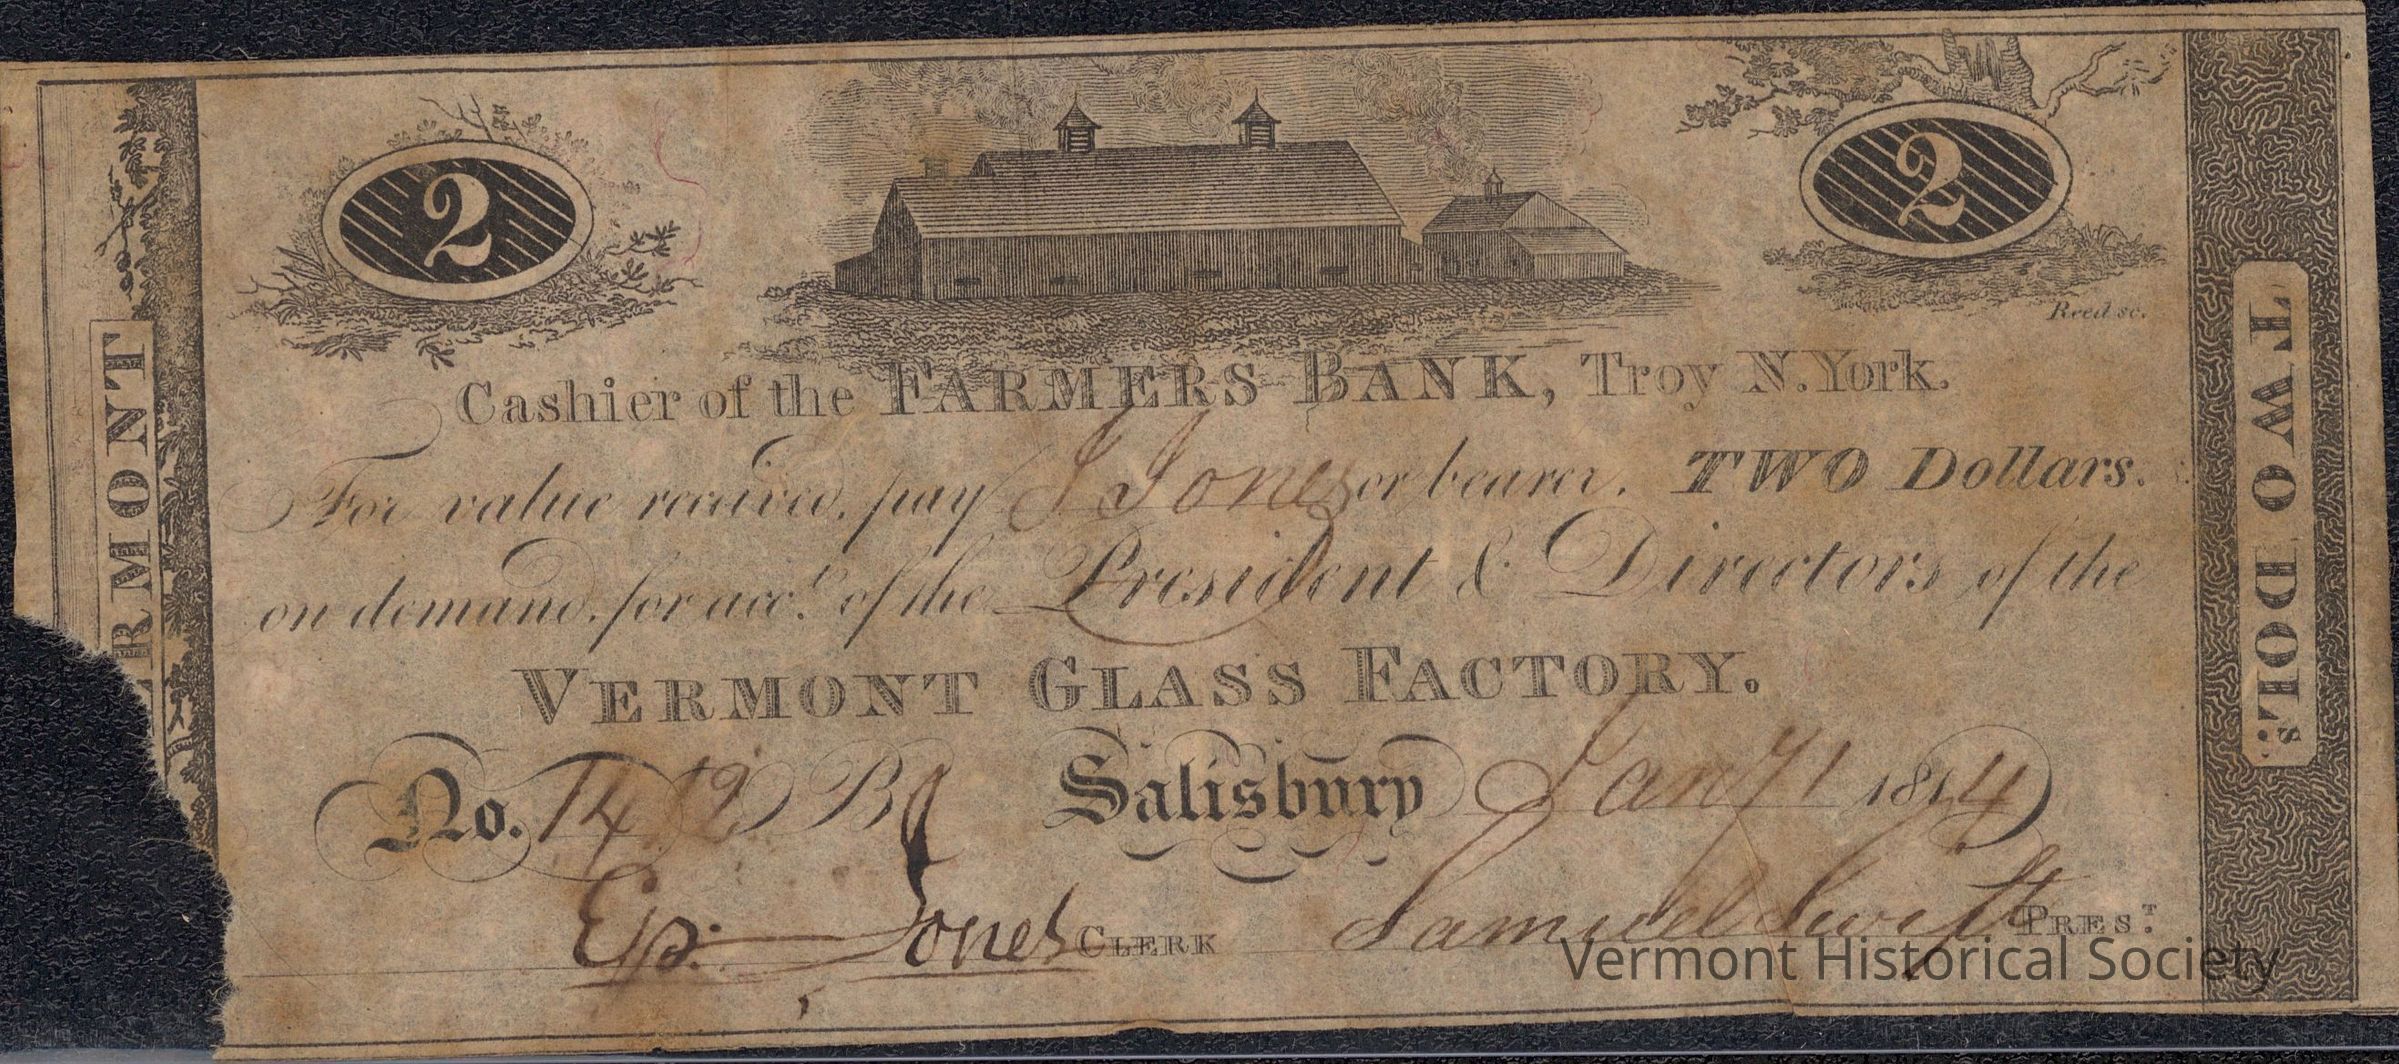 2
2
Reed sc.
VERMONT
TWO DOLS.
Cashier of the FARMERS BANK, Troy N. York.
For value received, pay J Jones or bearer, TWO Dollars.
on demand, for acct. of the President & Directors of the
VERMONT GLASS FACTORY.
No. Salisbury Jany 1 1814
Ep: Jones CLERK Samuel Swift PREST.
Vermont Historical Society